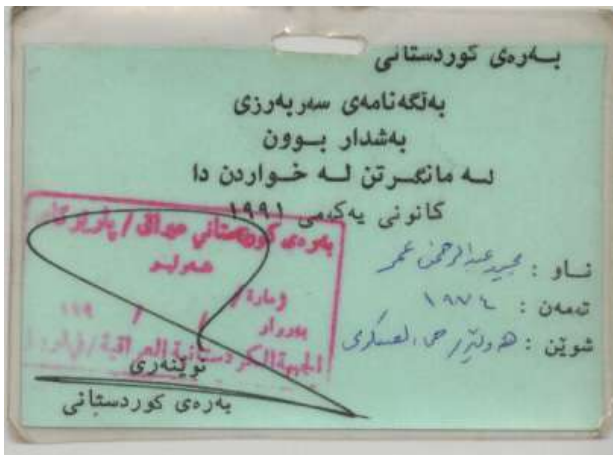 بەرەی کوردستانی
بەڵگەنامەی سەربەرزی
بەشدار بوون
لە مانگرتن لە خواردن دا
کانونی یەکەمی ١٩٩١
ناو : مجید عبدالرحمن عمر
تەمەن : ١٩٧٤
شوێن : هەولێر / حی العسکری
بەرەی کوردستانی عیراق /
هەولێر
ژمارە /
بەروار / / ١٩٩
الجبهة الکردستانية العراقية /
نوێنەری
بەرەی کوردستانی